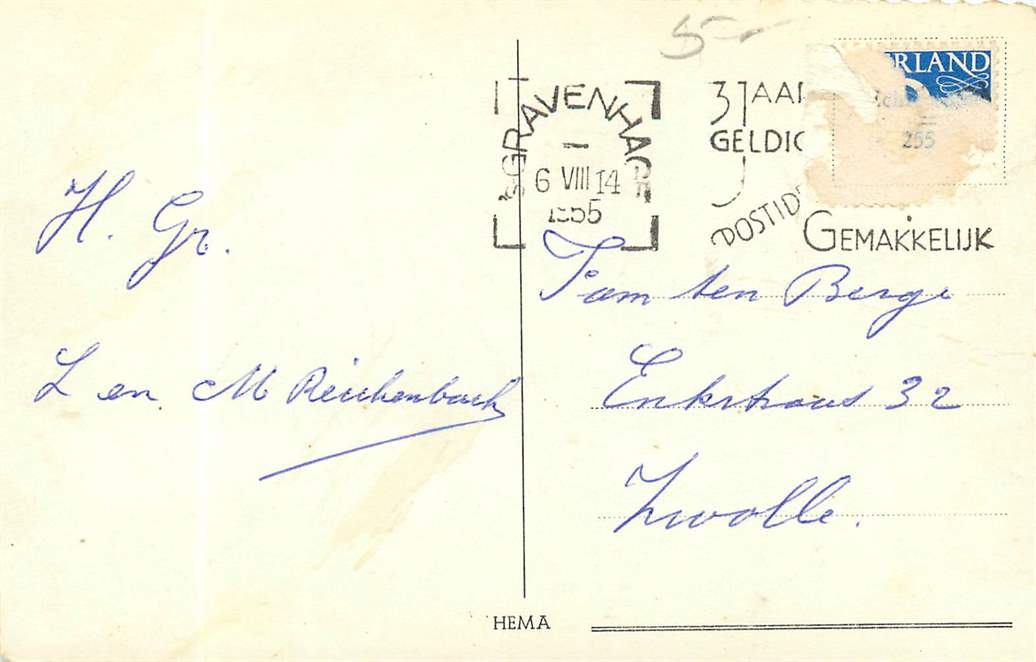 5-
'S GRAVENHAGE
6 VIII 14
1955
3 JAAR
GELDIG
POSTIDE
GEMAKKELIJK
ERLAND
255
H. Gr.
L en M Reichenbach
Fam ten Berge
Enkstraat 32
Zwolle.
HEMA